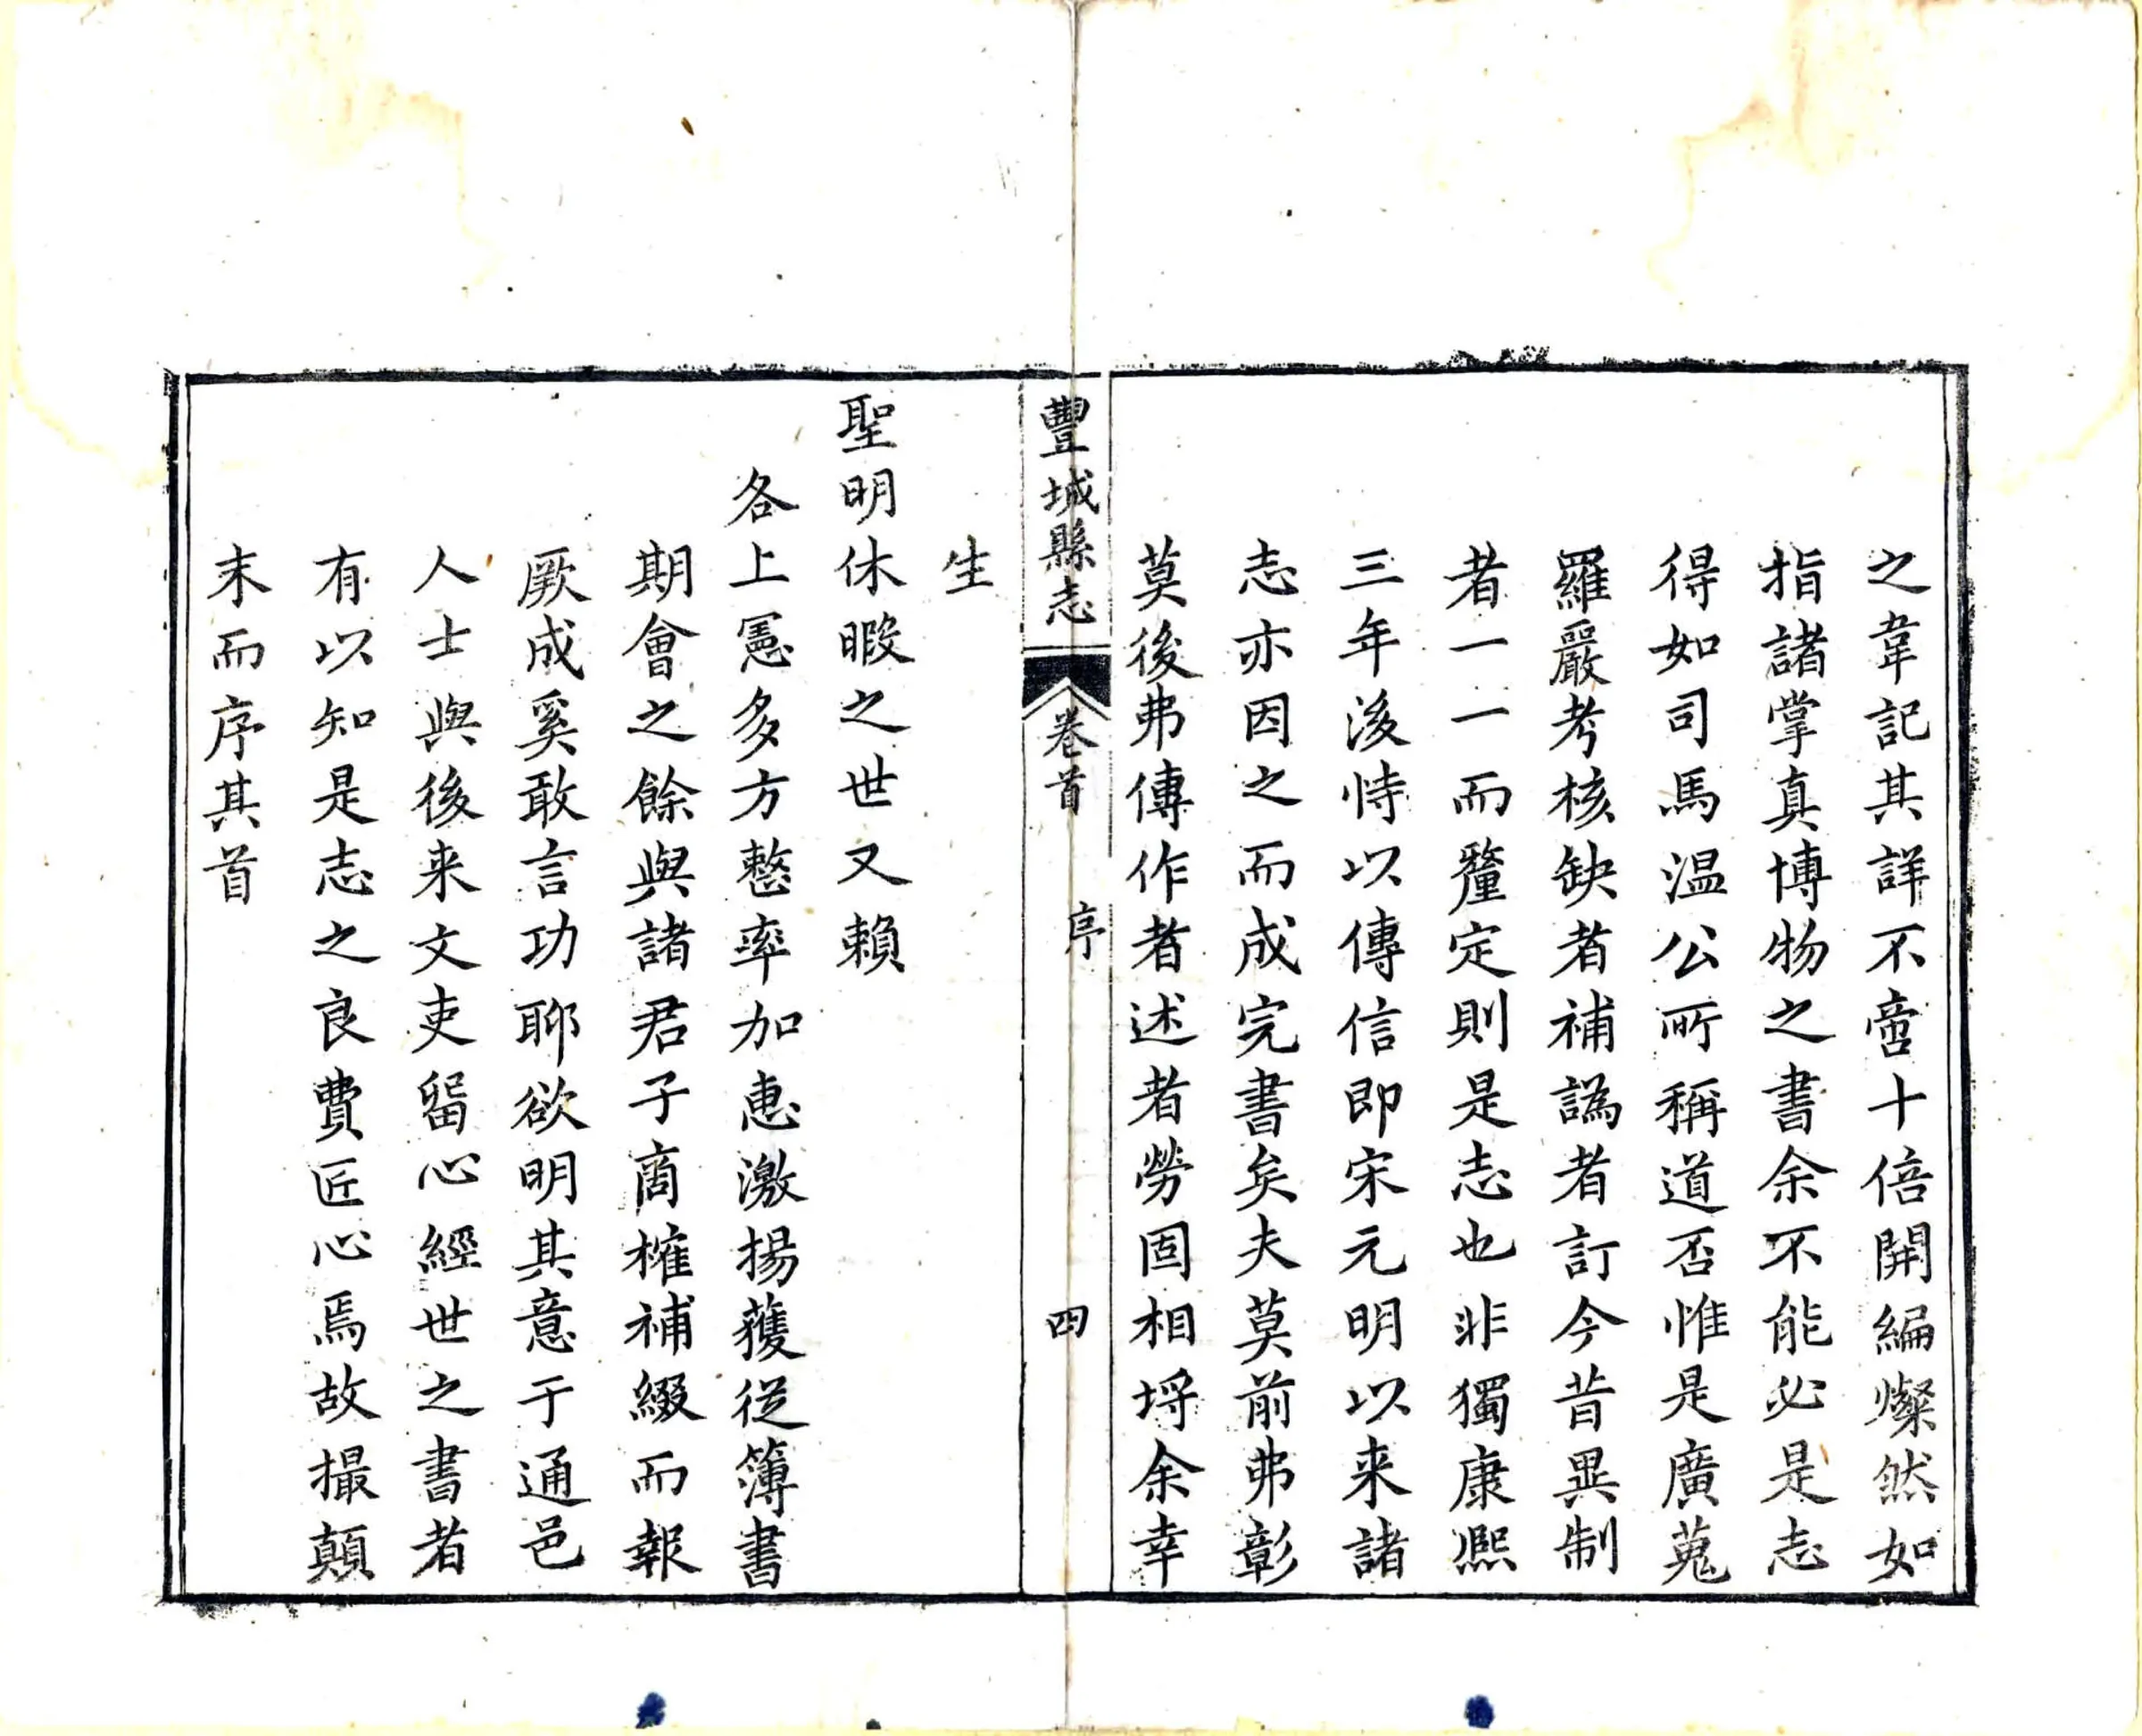 之韋記其詳不啻十倍開編燦然如
指諸掌真博物之書余不能必是志
得如司馬温公所稱道否惟是廣蒐
羅嚴考核缺者補譌者訂今昔異制
者一一而釐定則是志也非獨康熙
三年後恃以傳信即宋元明以来諸
志亦因之而成完書矣夫莫前弗彰
莫後弗傳作者述者勞固相埒余幸
豐城縣志 卷首 序 四
生
聖明休暇之世又賴
各上憲多方整率加惠激揚蒦從簿書
期會之餘與諸君子商榷補綴而報
厥成奚敢言功聊欲明其意于通邑
人士與後来文吏留心經世之書者
有以知是志之良費匠心焉故撮顛
末而序其首